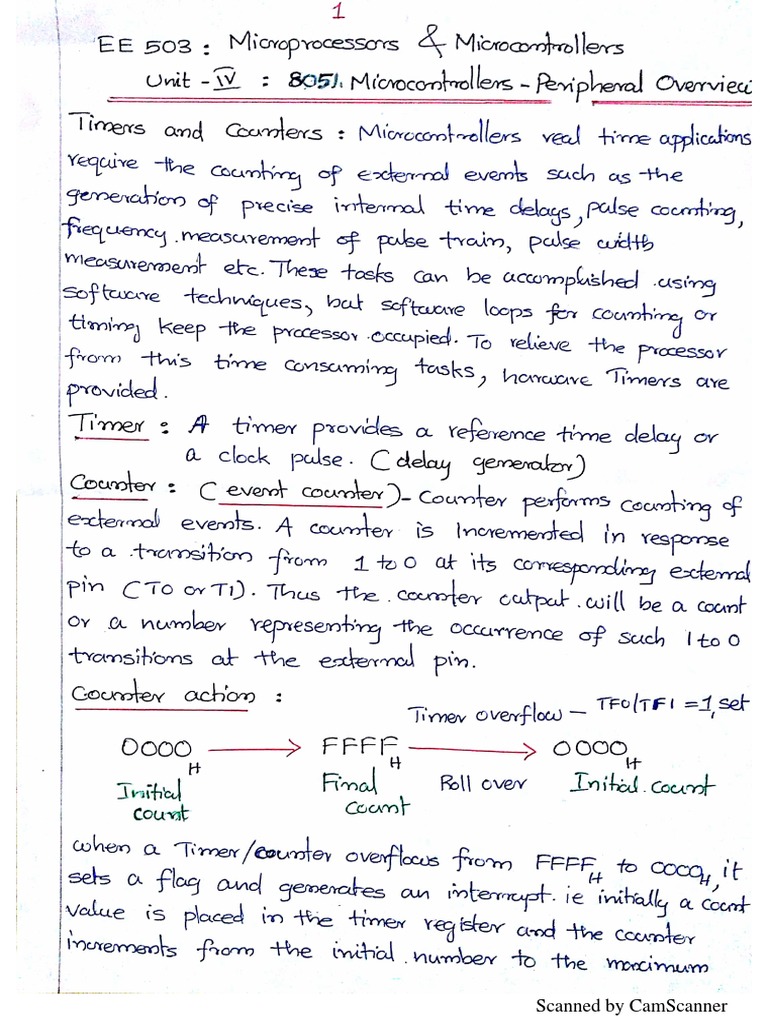 1
EE 503 : Microprocessors & Microcontrollers
Unit - IV : 8051 Microcontrollers - Peripheral Overview
Timers and Counters : Microcontrollers real time applications
require the counting of external events such as the
generation of precise internal time delays, pulse counting,
frequency measurement of pulse train, pulse width
measurement etc. These tasks can be accomplished using
software techniques, but software loops for counting or
timing keep the processor occupied. To relieve the processor
from this time consuming tasks, harware Timers are
provided.
Timer : A timer provides a reference time delay or
a clock pulse. (delay generator)
Counter : (event counter) - Counter performs counting of
external events. A counter is Incremented in response
to a transition from 1 to 0 at its corresponding external
pin (T0 or T1). Thus the counter output will be a count
or a number representing the occurrence of such 1 to 0
transitions at the external pin.
Counter action :
Timer overflow - TF0/TF1 = 1, set
0000H → FFFFH → 0000H
Initial count Final count Roll over Initial count
when a Timer/counter overflows from FFFFH to 0000H, it
sets a flag and generates an interrupt. ie initially a count
value is placed in the timer register and the counter
increments from the initial number to the maximum
Scanned by CamScanner